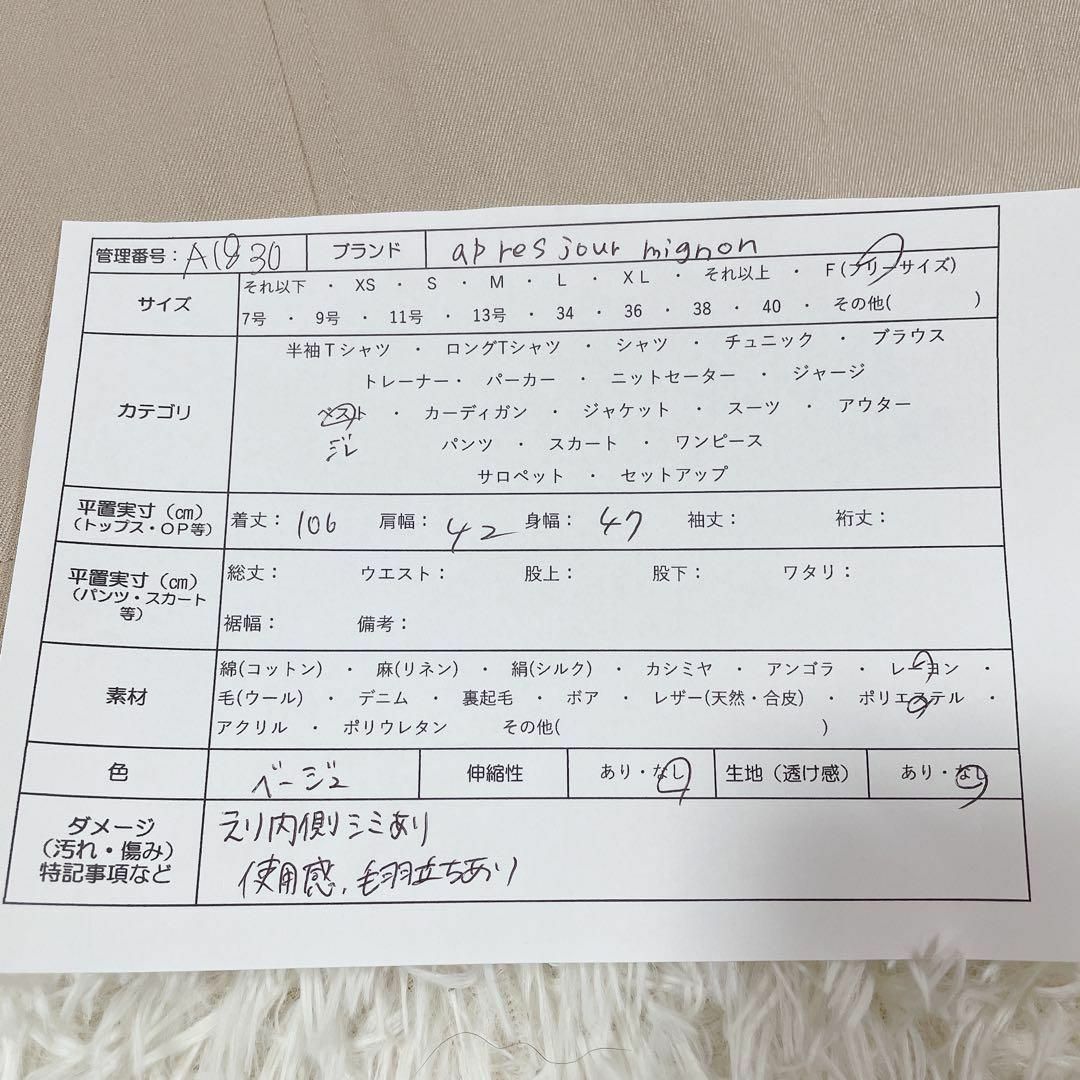 管理番号：A1830 ブランド apres jour mignon
サイズ それ以下 ・ XS ・ S ・ M ・ L ・ XL ・ それ以上 ・ F(フリーサイズ)
7号 ・ 9号 ・ 11号 ・ 13号 ・ 34 ・ 36 ・ 38 ・ 40 ・ その他( )
カテゴリ
半袖Tシャツ ・ ロングTシャツ ・ シャツ ・ チュニック ・ ブラウス
トレーナー・ パーカー ・ ニットセーター ・ ジャージ
ベスト ・ カーディガン ・ ジャケット ・ スーツ ・ アウター
ジレ パンツ ・ スカート ・ ワンピース
サロペット ・ セットアップ
平置実寸（㎝）
（トップス・OP等） 着丈： 106 肩幅： 42 身幅： 47 袖丈： 裄丈：
平置実寸（㎝）
（パンツ・スカート等）
総丈： ウエスト： 股上： 股下： ワタリ：
裾幅： 備考：
素材
綿(コットン) ・ 麻(リネン) ・ 絹(シルク) ・ カシミヤ ・ アンゴラ ・ レーヨン ・
毛(ウール) ・ デニム ・ 裏起毛 ・ ボア ・ レザー(天然・合皮) ・ ポリエステル ・
アクリル ・ ポリウレタン その他( )
色 ベージュ 伸縮性 あり・なし 生地（透け感） あり・なし
ダメージ
（汚れ・傷み）
特記事項など
えり内側シミあり
使用感、毛羽立ちあり